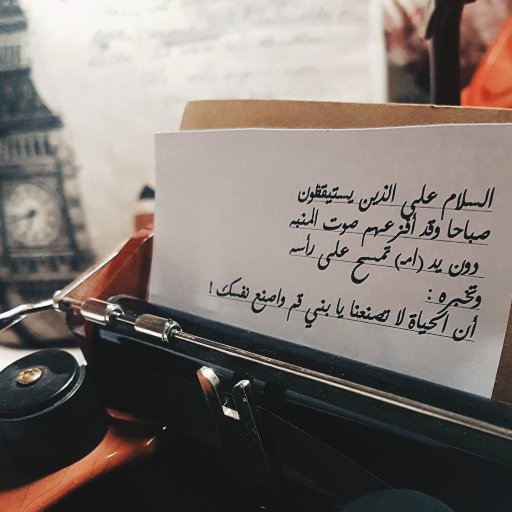 السلام على الذين يستيقظون
صباحا وقد أفزعهم صوت المنبه
دون يد (أم) تمسح على رأسه
وتخبره :
أن الحياة لا تصنعنا يا بني قم واصنع نفسك !